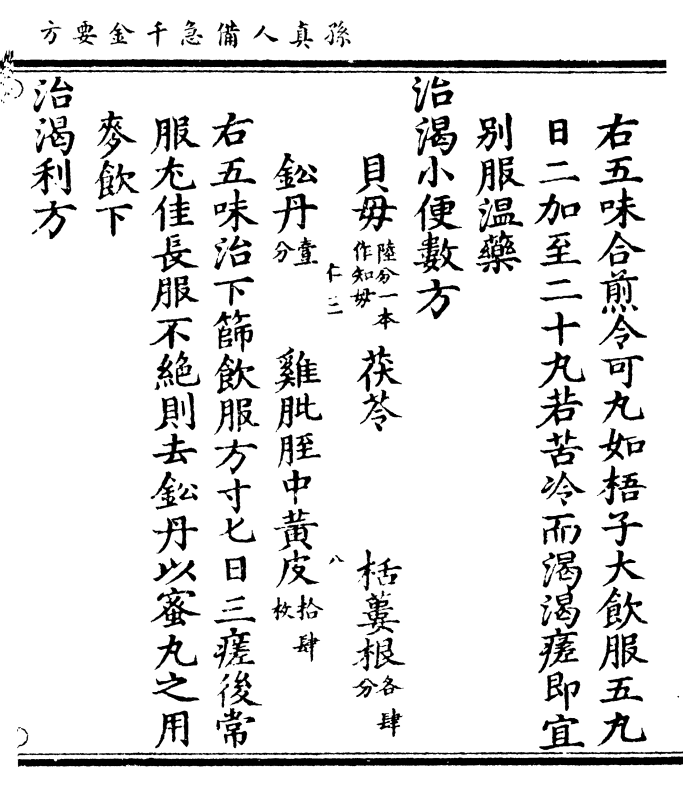 孫真人備急千金要方
右五味合煎令可丸如梧子大飲服五丸
日二加至二十丸若苦冷而渴渴瘥即宜
別服温藥
治渴小便數方
貝母陸分一本作知母 茯苓 栝蔞根各肆分
鈆丹壹分 雞肶胵中黃皮拾肆枚
右五味治下篩飲服方寸匕日三瘥後常
服尤佳長服不絕則去鈆丹以蜜丸之用
麥飲下
治渴利方